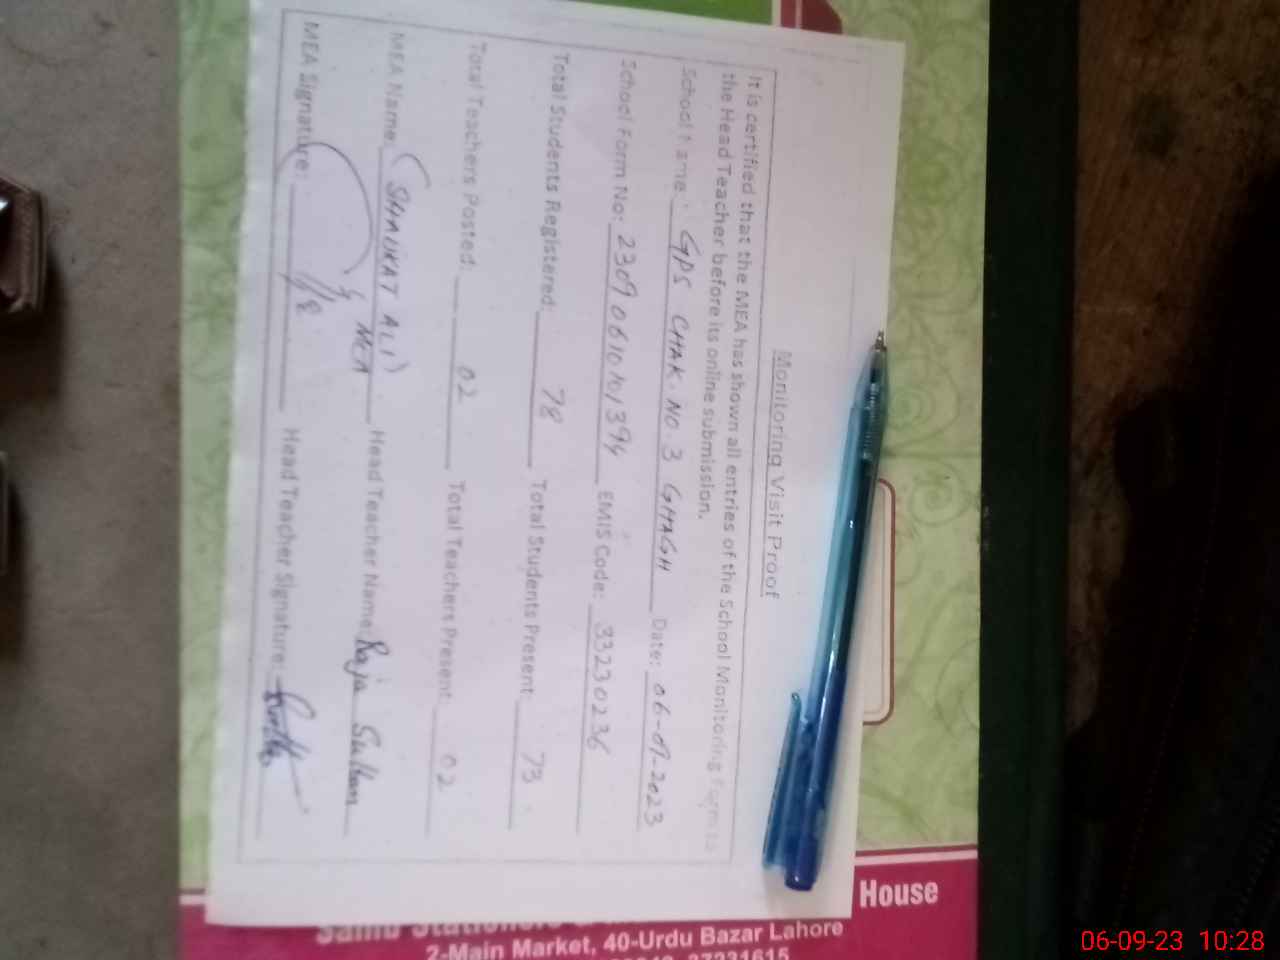 Monitoring Visit Proof
It is certified that the MEA has shown all entries of the School Monitoring Form to
the Head Teacher before its online submission.
School Name: GPS CHAK. NO. 3 GHAGH Date: 06-09-2023
School Form No: 23090610101394 EMIS Code: 33230236
Total Students Registered: 78 Total Students Present: 73
Total Teachers Posted: 02 Total Teachers Present: 02
MEA Name: (SHAUKAT ALI) Head Teacher Name: Raja Sultan
MEA
MEA Signature: Head Teacher Signature:
House
2-Main Market, 40-Urdu Bazar Lahore
37231615
06-09-23 10:28